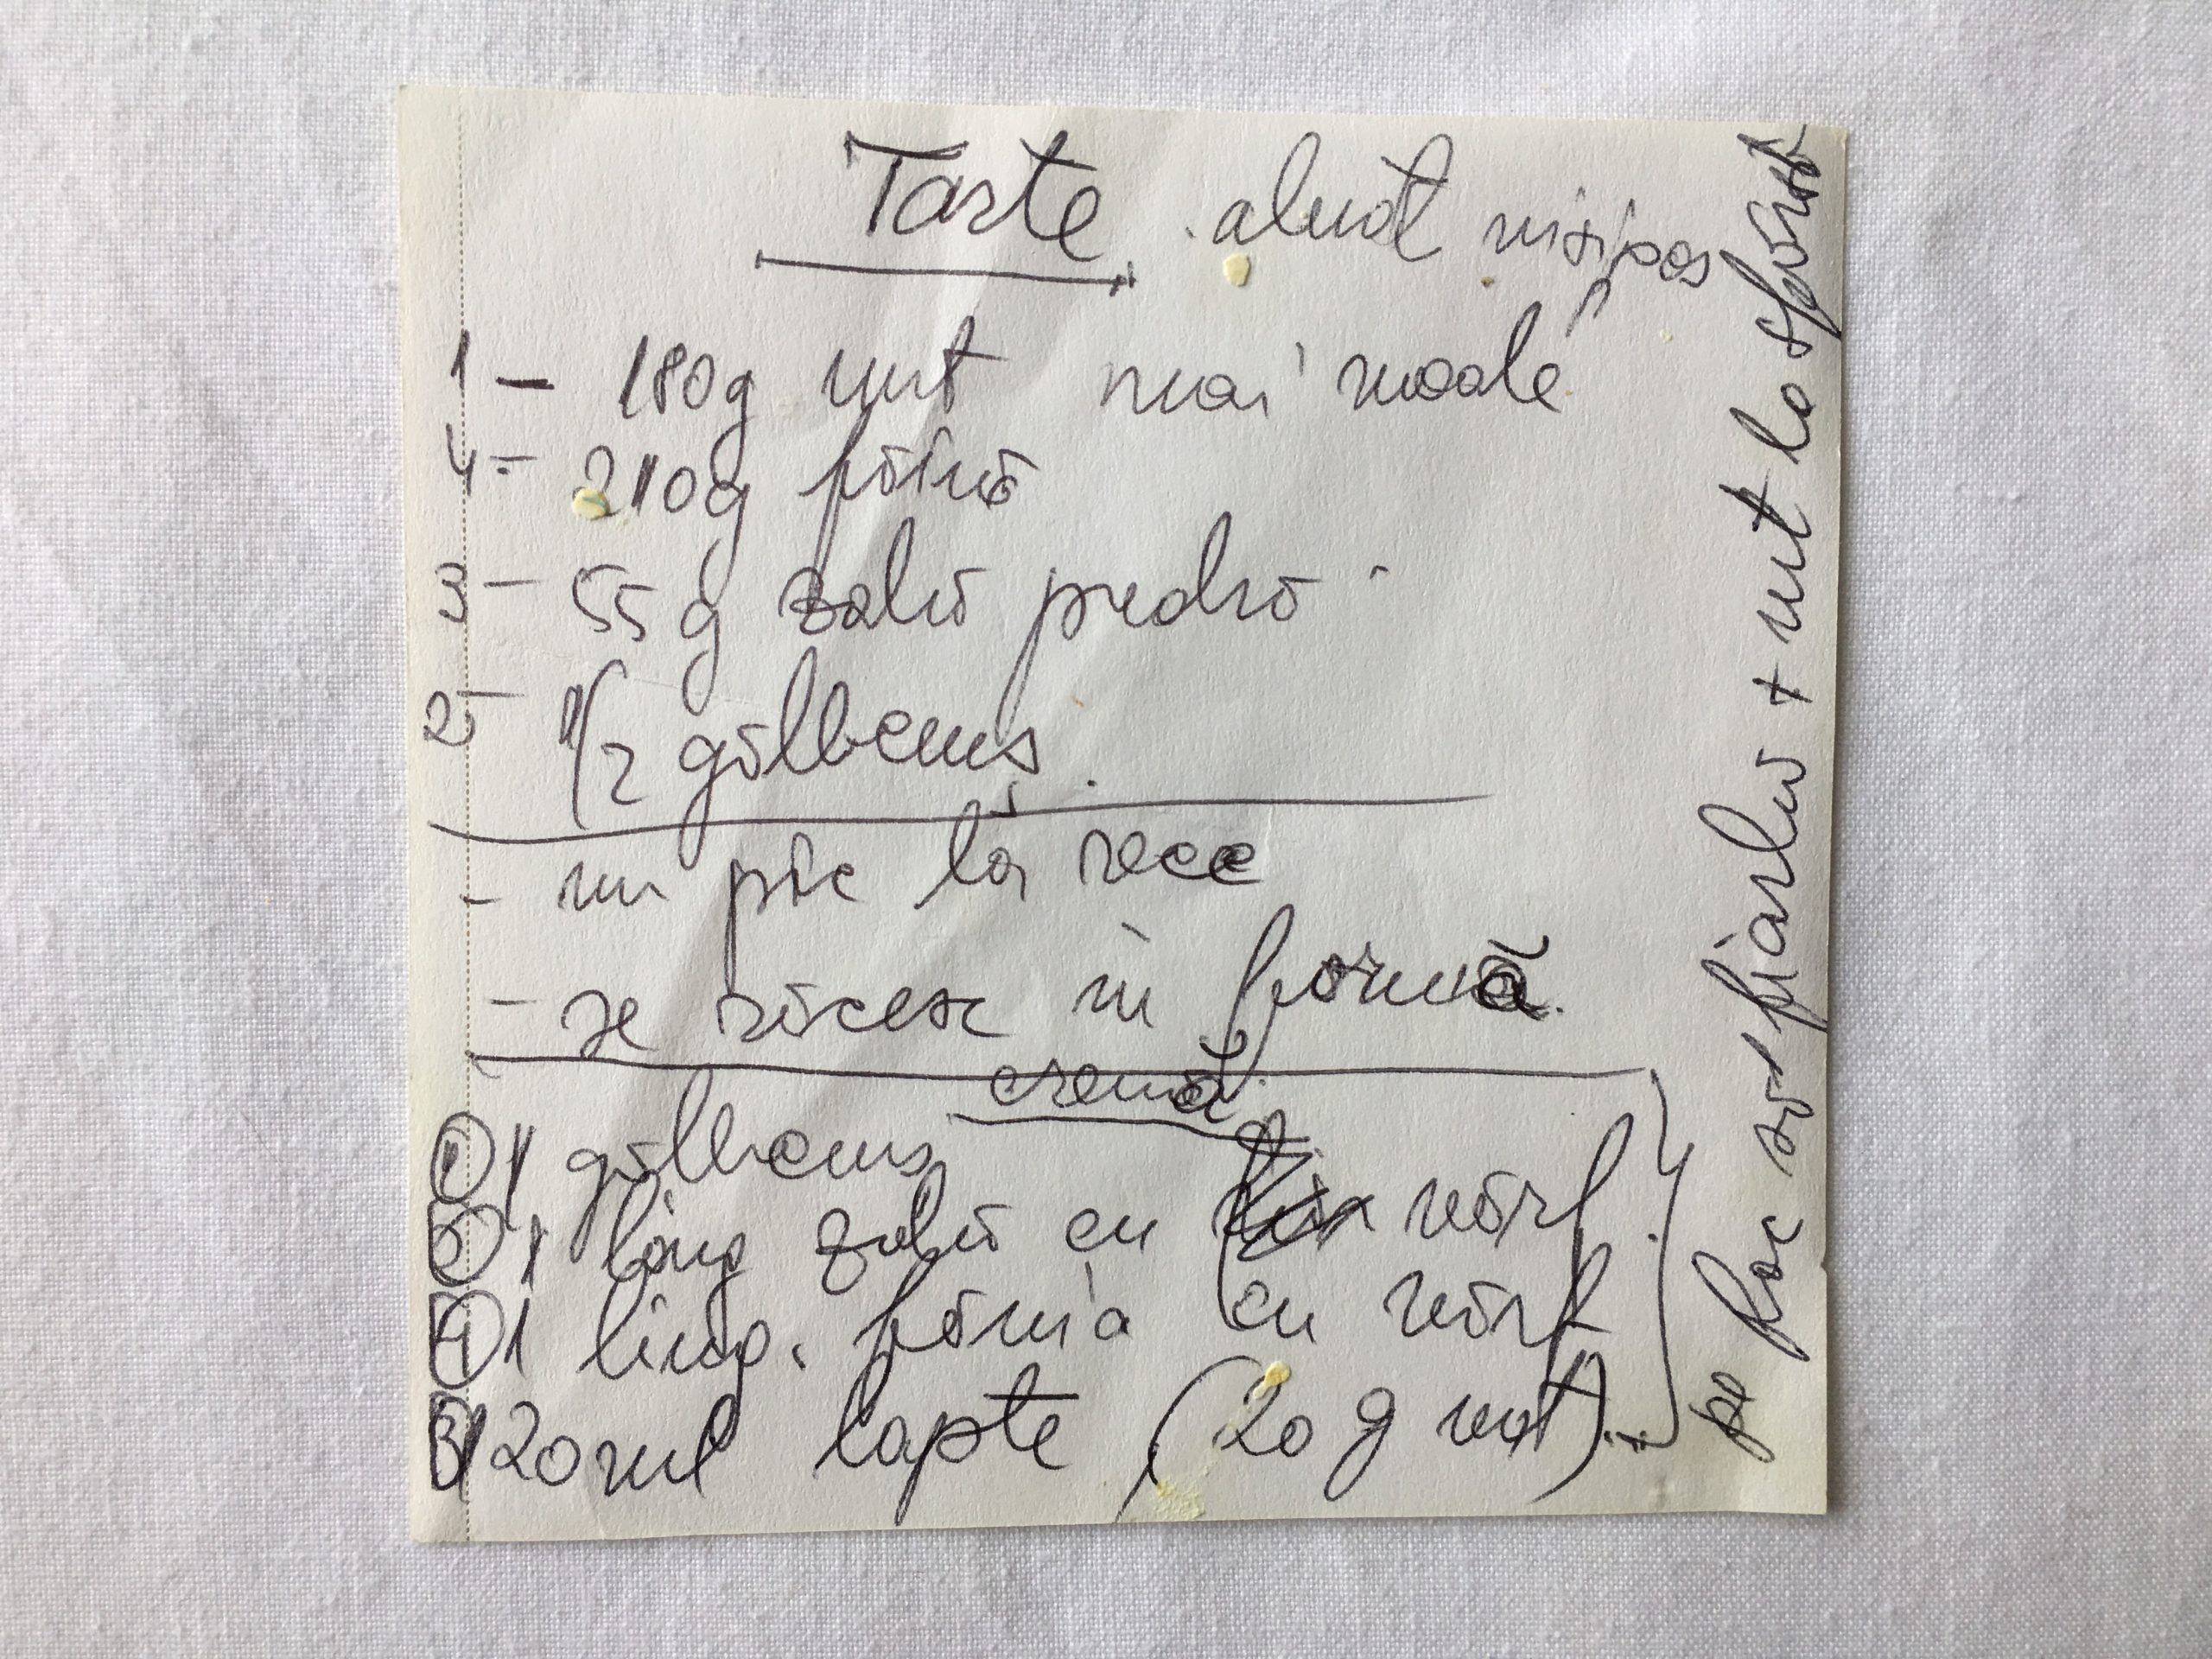 Tarte aluat nisipos
1 - 180g unt mai moale
4 - 210g făină
3 - 55g zahăr pudră
2 - 1/2 gălbenuș.
- un pic la rece
- se răcesc în formă.
cremă
① 1 gălbenuș
② 1 ling zahăr cu vârf
④ 1 ling. făină cu vârf
③ 120 ml lapte (20 g unt)
pe foc să fiarbă + unt la sfârșit